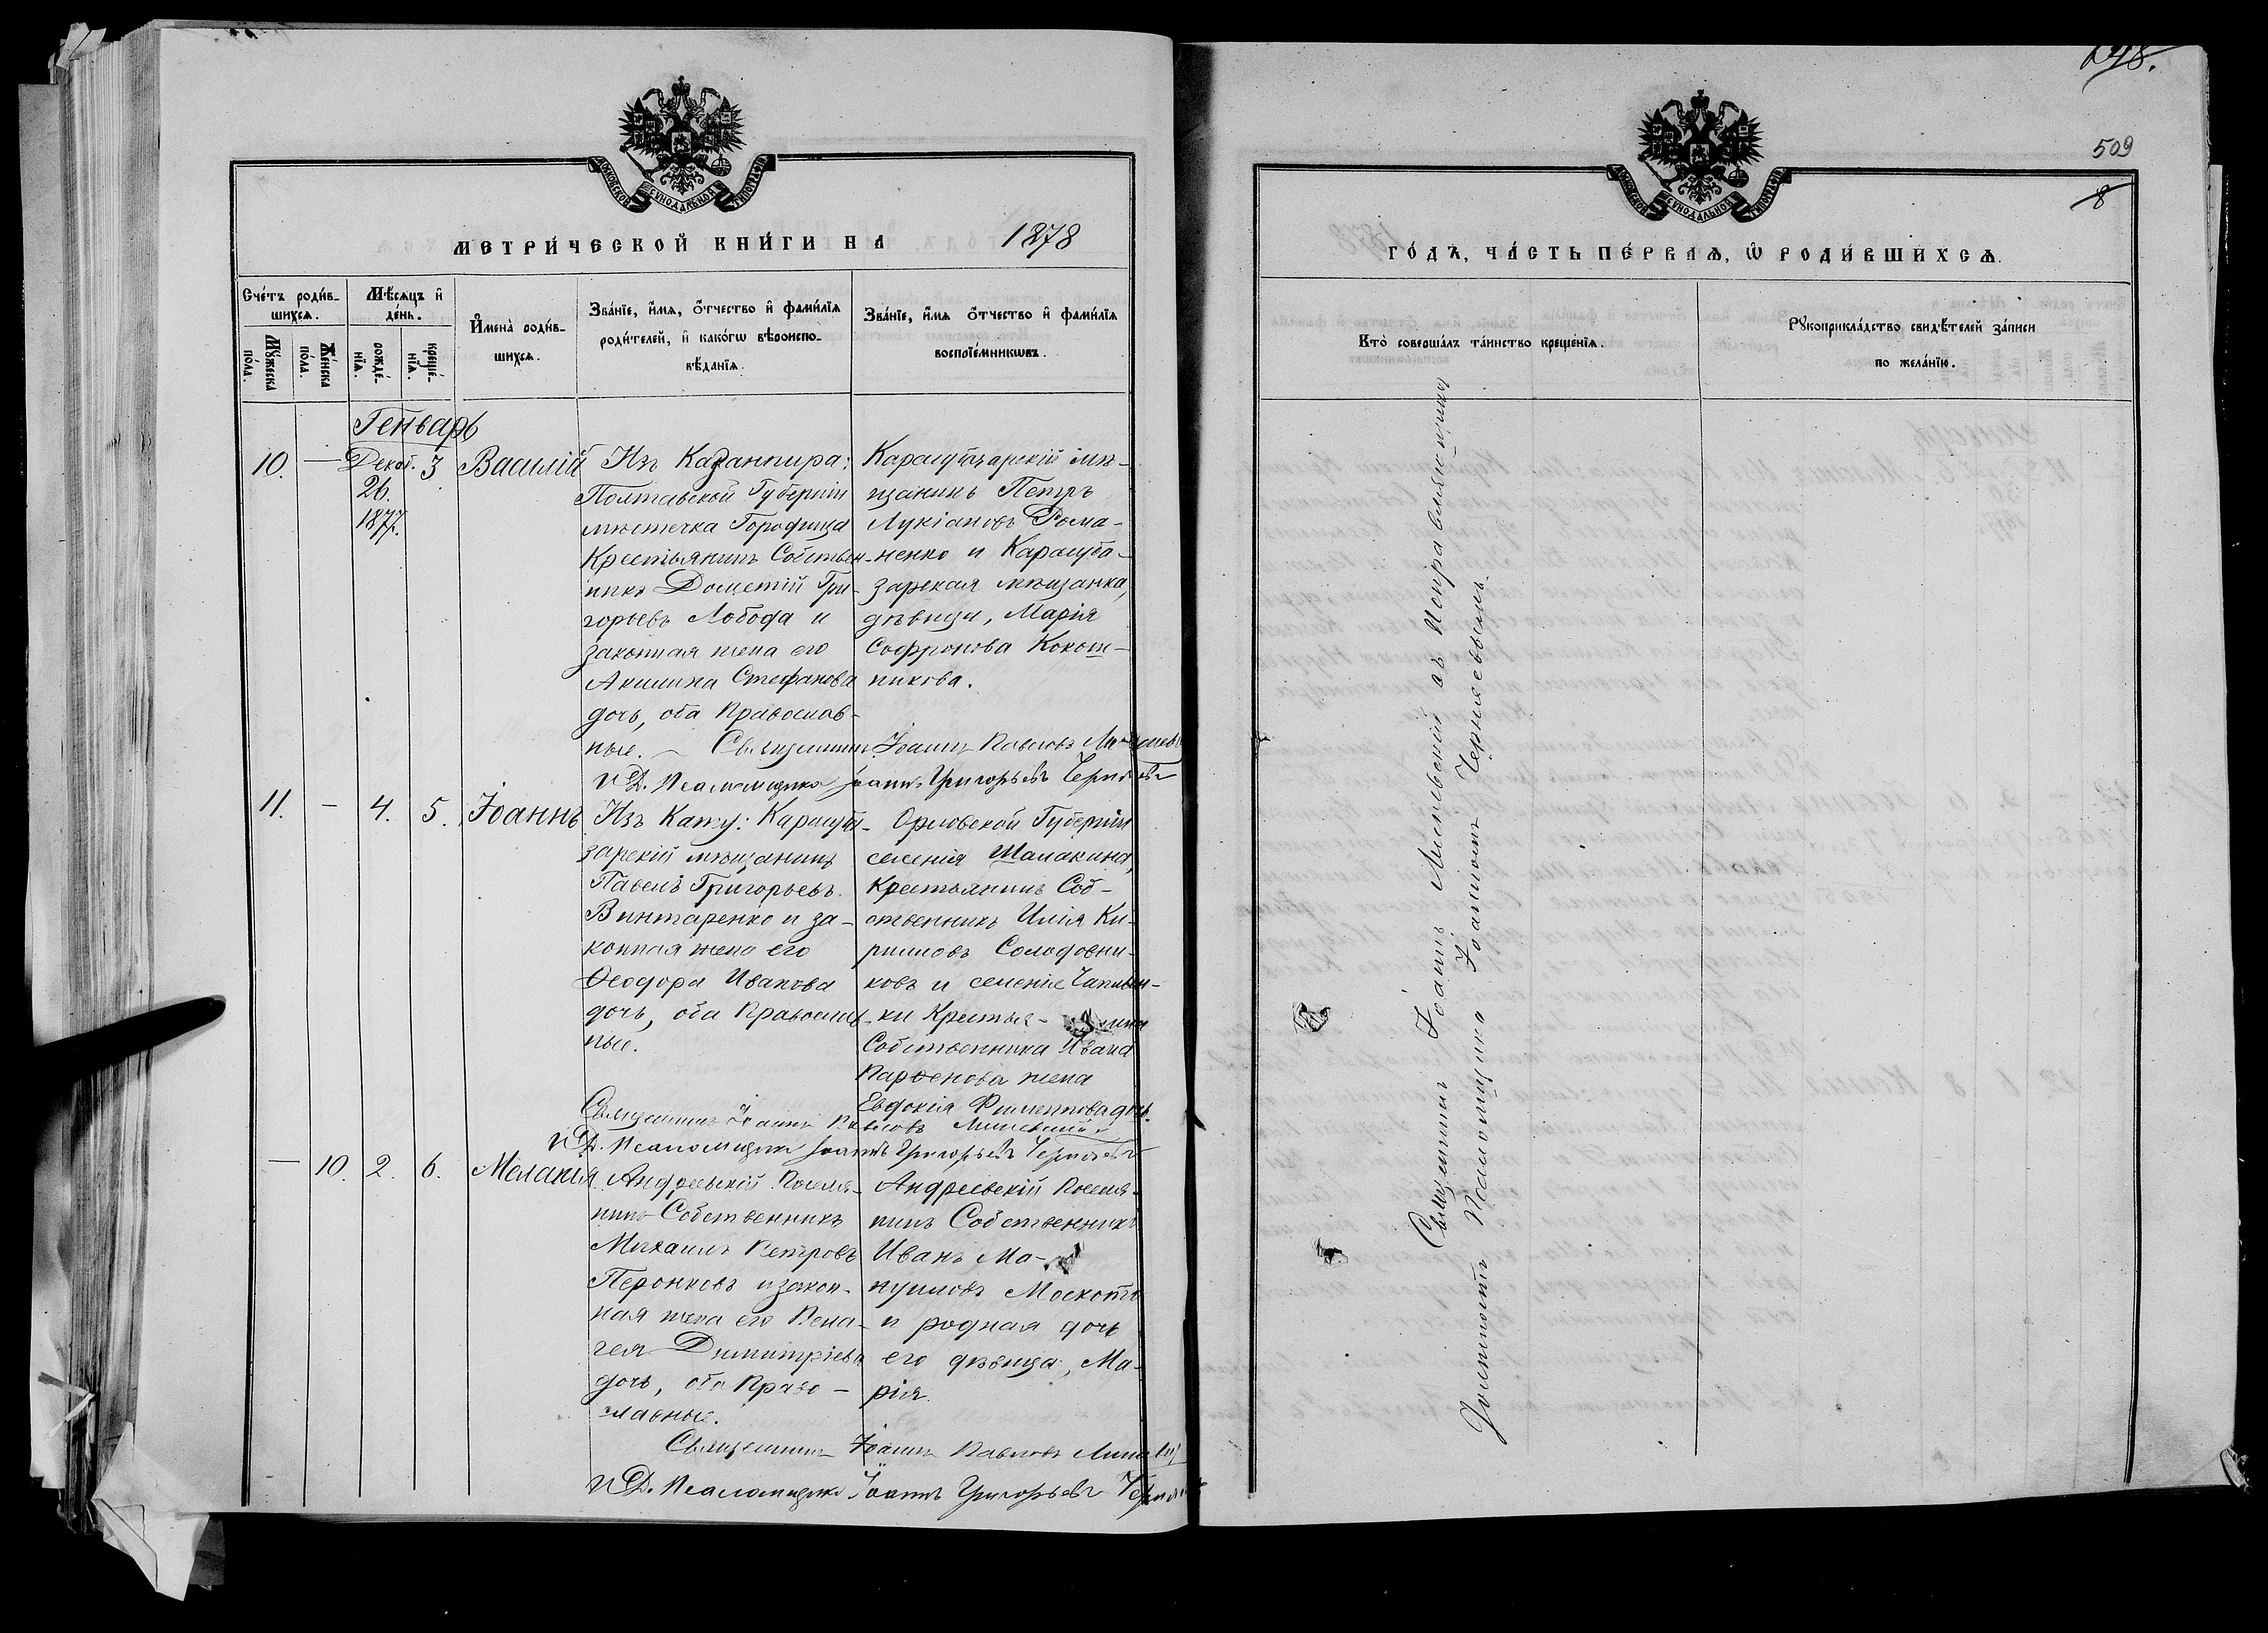 МОСКОВСКОЙ СѴНОДАЛЬНОЙ ТИПОГРАФІИ
МЕТРИ́ЧЕСКОЙ КНИ́ГИ НА 1878
Сче́тъ роди́вшихсѧ.
Мꙋ́жеска по́ла.
Же́нска по́ла.
Мѣ́сѧцъ и де́нь.
рожде́нїѧ.
креще́нїѧ.
Имена̀ роди́вшихсѧ.
Зва́нїе, и́мѧ, о́тчество и фами́лїѧ родителей, и како́гѡ вѣроисповѣданїѧ.
Зва́нїе, и́мѧ о́тчество и фами́лїѧ воспрїе́мникѡвъ.
Генварь
10. — Декаб. 26. 1877. 3 Василій
Изъ Казанпира;
Полтавской Губерніи
мѣстечка Городища
Крестьянинъ Собствен-
никъ Дометій Гри-
горьевъ Лобода и
законная жена его
Акилина Стефанова
дочь, оба Православ-
ные.
Карасубазарскій мѣ-
щанинъ Петръ
Лукіановъ Рома-
ненко и Карасуба-
зарская мѣщанка,
дѣвица, Марія
Софронова Кокот-
никова.
Священникъ Іоаннъ Павловъ
И. Д. Псаломщика Іоаннъ Григорьевъ
11. — 4. 5. Іоаннъ
Изъ Карасуба-
зарскій мѣщанинъ
Павелъ Григорьевъ
Винтаренко и за-
конная жена его
Ѳеодора Иванова
дочь, оба Православ-
ные.
Орловской Губерніи
селенія Шалакина,
Крестьянинъ Соб-
ственникъ Илія Ки-
рилловъ Солодовни-
ковъ и селеніе
ки Крестья- нина
Собственника Ивана
Парѳенова жена
Евдокія дочь.
Священникъ Іоаннъ Павловъ
И. Д. Псаломщика Іоаннъ Григорьевъ
— 10. 2. 6. Меланія
Андреевскій Поселя-
нинъ Собственникъ
Михаилъ Петровъ
Перонковъ и закон-
ная жена его Пела-
гея Димитріева
дочь, оба Право-
славные.
Андреевскій Поселя-
нинъ Собственникъ
Иванъ Ма-
нуиловъ
и родная дочь
его дѣвица, Ма-
рія.
Священникъ Іоаннъ Павловъ
И. Д. Псаломщика Іоаннъ Григорьевъ
509
8
МОСКОВСКОЙ СѴНОДАЛЬНОЙ ТИПОГРАФІИ
ГО́ДЪ, ЧА́СТЬ ПЕ́РВАѦ, Ѡ РОДИ́ВШИХСѦ.
Кто̀ соверша́лъ та́инство креще́нїѧ.
Рꙋкоприкла́дство свидѣ́телей за́писи по жела́нїю.
Священникъ Іоаннъ съ Исправляющимъ
Должность Псаломщика Іоанномъ Черняевымъ.